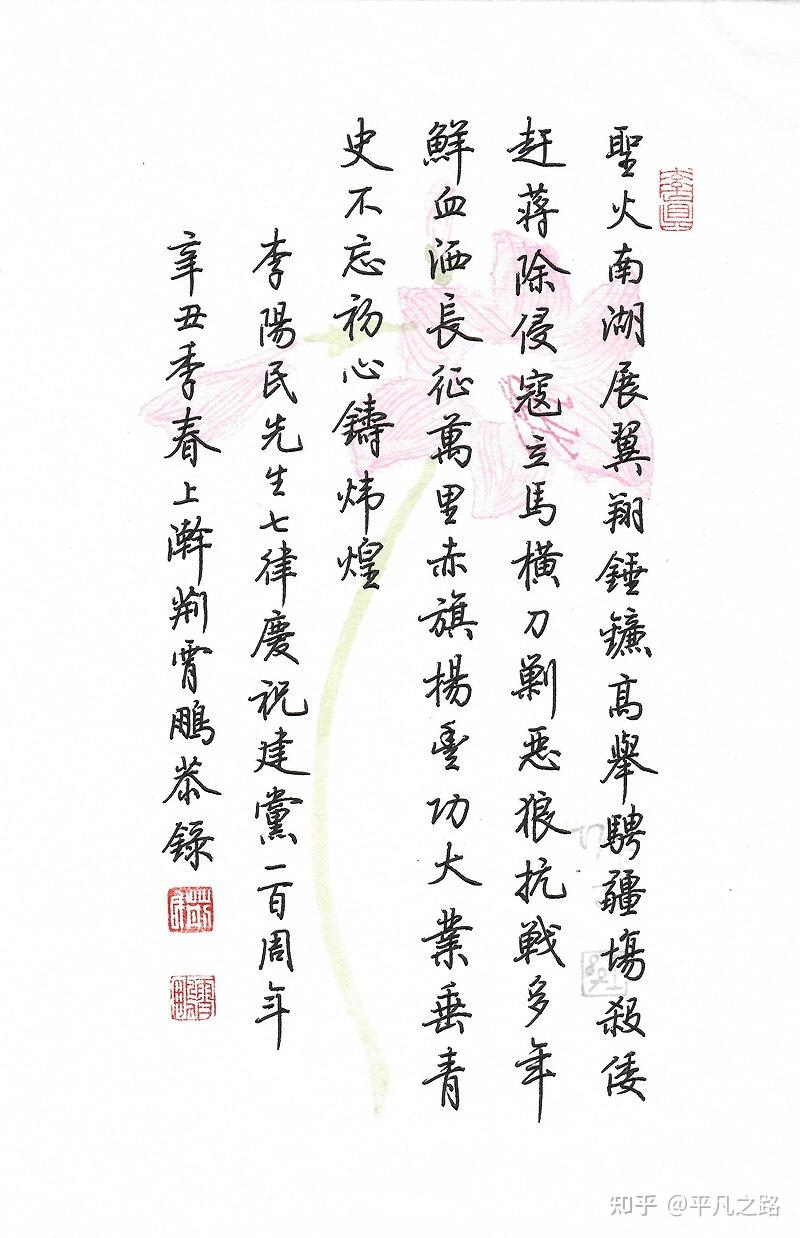 聖火南湖展翼翔錘鐮高舉騁疆場殺倭
赶蔣除侵寇立馬橫刀剿惡狼抗戰多年
鮮血洒長征萬里赤旗揚豐功大業垂青
史不忘初心鑄炜煌
李陽民先生七律慶祝建黨一百周年
辛丑季春上澣荆霄鵬恭錄
知乎 @平凡之路